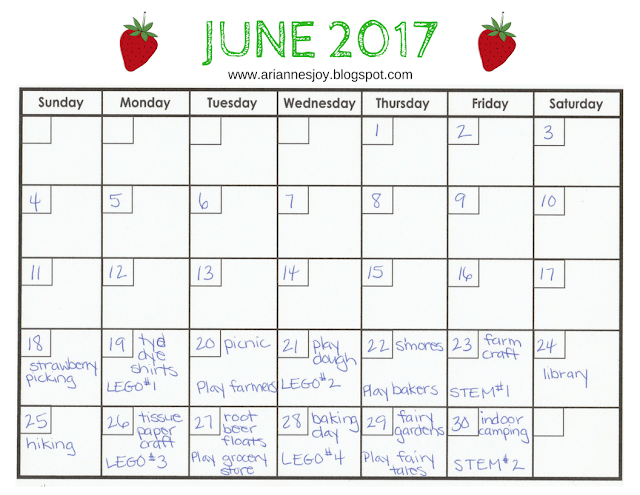 JUNE 2017
www.ariannesjoy.blogspot.com
Sunday Monday Tuesday Wednesday Thursday Friday Saturday
1 2 3
4 5 6 7 8 9 10
11 12 13 14 15 16 17
18 strawberry
picking
19 tyd
dye
shirts
LEGO #1
20 picnic
Play farmers
21 play
dough
LEGO #2
22 s'mores
Play bakers
23 farm
craft
STEM #1
24
library
25
hiking
26 tissue
paper
craft
LEGO #3
27 root
beer
floats
Play grocery
store
28 baking
day
LEGO #4
29 fairy
gardens
Play fairy
tales
30 indoor
camping
STEM #2